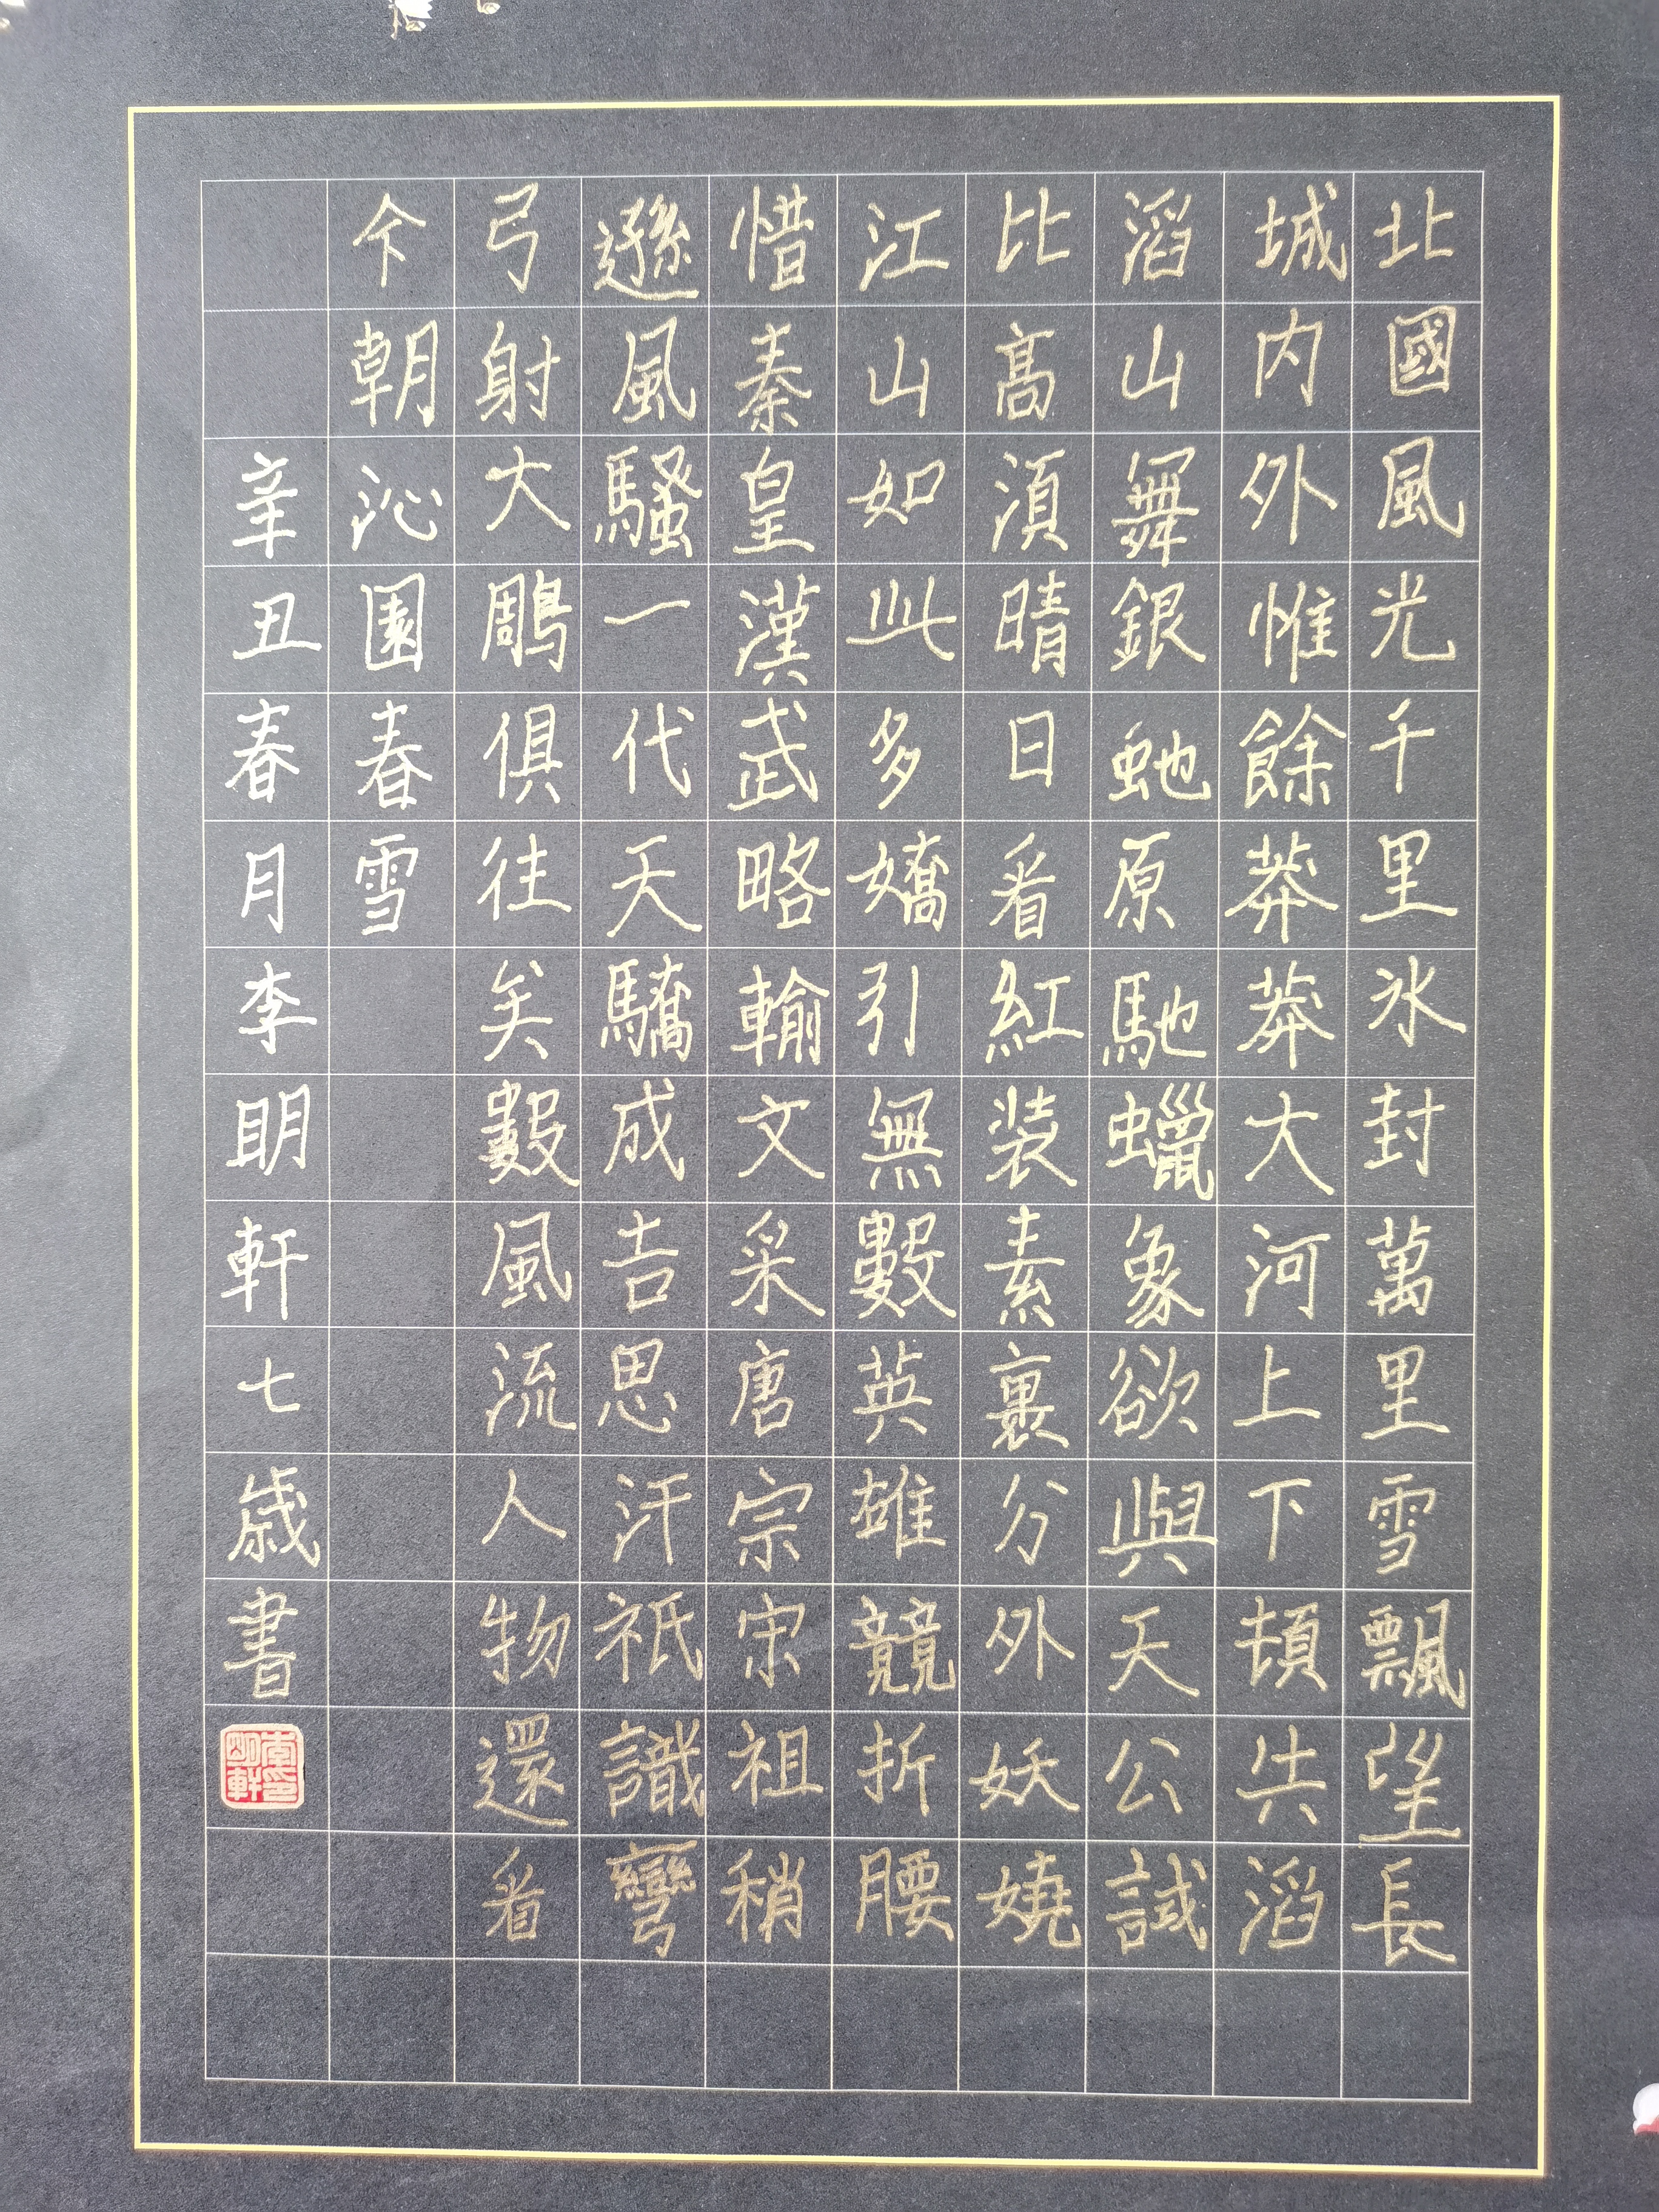 北國風光千里冰封萬里雪飄望長
城内外惟餘莽莽大河上下頓失滔
滔山舞銀虵原馳蠟象欲與天公試
比高須晴日看紅装素裹分外妖嬈
江山如此多嬌引無數英雄競折腰
惜秦皇漢武略輸文采唐宗宋祖稍
遜風騷一代天驕成吉思汗祇識彎
弓射大鵰俱往矣數風流人物還看
今朝沁園春雪
辛丑春月李明軒七歲書
李印明軒